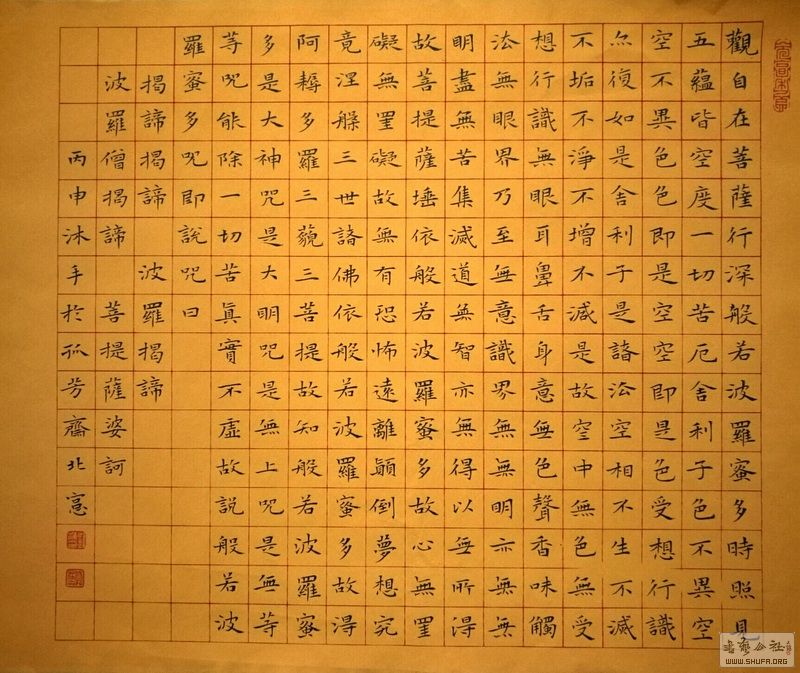 觀自在菩薩行深般若波羅蜜多時照見
五蘊皆空度一切苦厄舍利子色不異空
空不異色色即是空空即是色受想行識
亦復如是舍利子是諸法空相不生不滅
不垢不淨不增不減是故空中無色無受
想行識無眼耳鼻舌身意無色聲香味觸
法無眼界乃至無意識界無無明亦無無
明盡無苦集滅道無智亦無得以無所得
故菩提薩埵依般若波羅蜜多故心無罣
礙無罣礙故無有恐怖遠離顛倒夢想究
竟涅槃三世諸佛依般若波羅蜜多故得
阿耨多羅三藐三菩提故知般若波羅蜜
多是大神咒是大明咒是無上咒是無等
等咒能除一切苦真實不虛故説般若波
羅蜜多咒即説咒曰
揭諦揭諦 波羅揭諦
波羅僧揭諦 菩提薩婆訶
丙申沐手於孤芳齋北窓
WWW.SHUFA.ORG